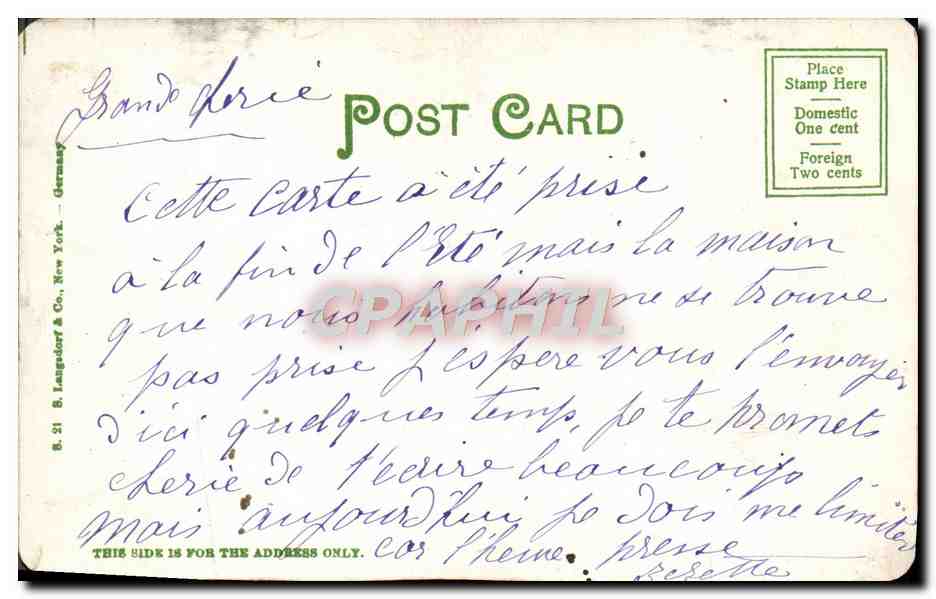 Grande cherie
POST CARD
Place
Stamp Here
Domestic
One cent
Foreign
Two cents
Cette carte a été prise
à la fin de l'Eté mais la maison
que nous habitons ne se trouve
pas prise j'espere vous l'envoyer
d'ici quelques temps, je te promets
cherie de t'ecrire beaucoup
mais aujourd'hui je dois me limiter
car l'heure presse
THIS SIDE IS FOR THE ADDRESS ONLY.
S. 21 S. Langsdorf & Co., New York. — Germany
CPAPHIL